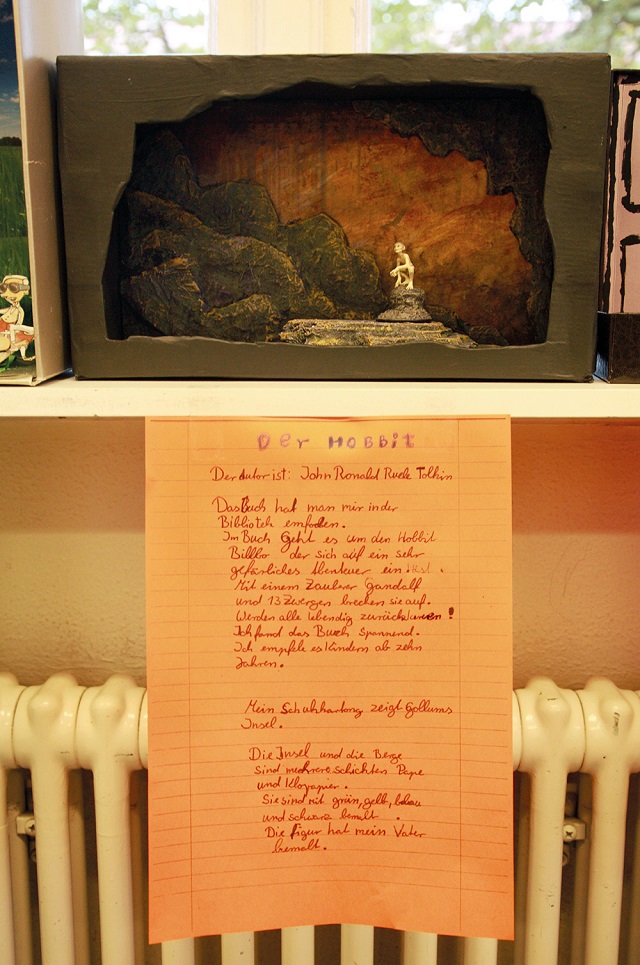 Der Hobbit
Der Autor ist: John Ronald Ruele Tolkin
Das Buch hat man mir in der
Bibliotek emfolen.
Im Buch geht es um den Hobbit
Billbo der sich auf ein sehr
gefärliches Abenteuer ein
Mit einem Zauberer Gandalf
und 13 Zwergen brechen sie auf.
Werden alle lebendig zurück !
Ich fand das Buch spannend.
Ich empfele es Kindern ab zehn
Jahren.
Mein Schuhkartong zeigt Gollums
Insel.
Die Insel und die Berge
sind mehrere schichten Pape
und Klopapier.
Sie sind mit grün, gelb, blau
und schwarz bemalt.
Die figur hat mein Vater
bemalt.